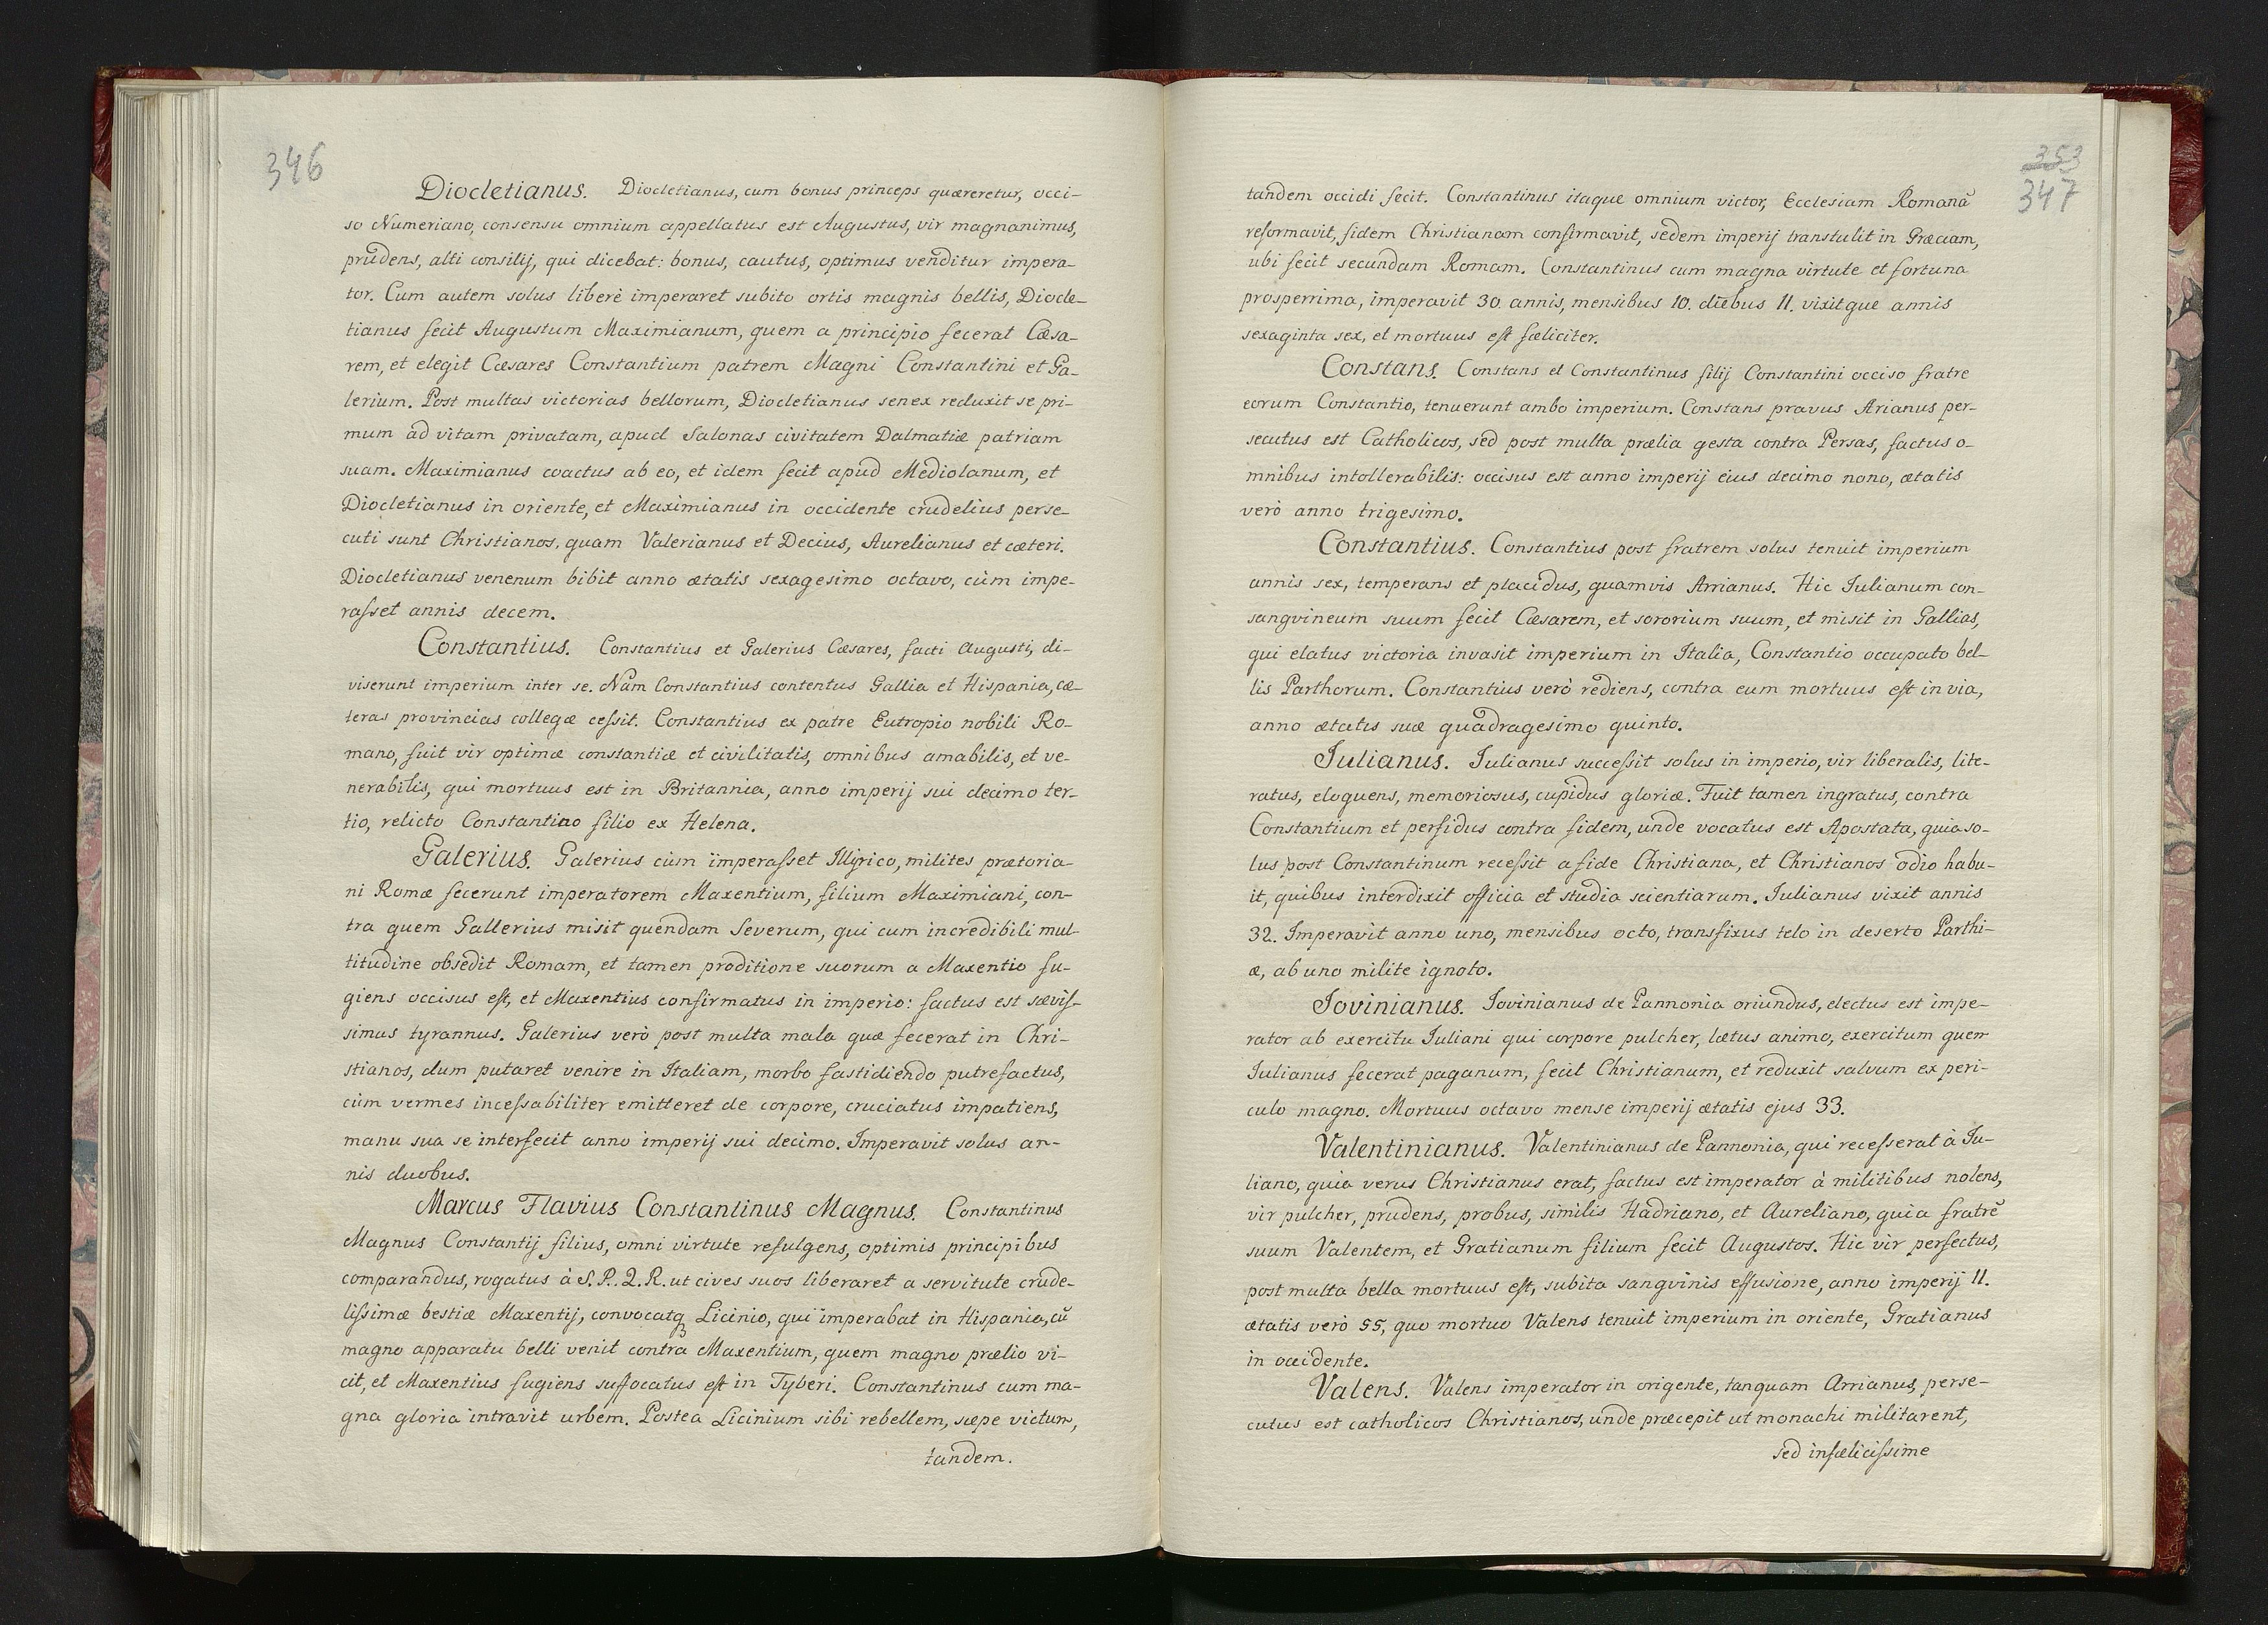 346
Diocletianus. Diocletianus, cum bonus princeps quæreretur, occi-
so Numeriano, consensu omnium appellatus est Augustus, vir magnanimus,
prudens, alti consilij, qui dicebat: bonus, cautus, optimus venditur impera-
tor. Cum autem solus liberè imperaret subito ortis magnis bellis, Diocle-
tianus fecit Augustum Maximianum, quem a principio fecerat Cæsa-
rem, et elegit Cæsares Constantium patrem Magni Constantini et Ga-
lerium. Post multas victorias bellorum, Diocletianus senex reduxit se pri-
mum ad vitam privatam, apud Salonas civitatem Dalmatiæ patriam
suam. Maximianus coactus ab eo, et idem fecit apud Mediolanum, et
Diocletianus in oriente, et Maximianus in occidente crudelius perse-
cuti sunt Christianos, quam Valerianus et Decius, Aurelianus et cæteri.
Diocletianus venenum bibit anno ætatis sexagesimo octavo, cùm impe-
rasset annis decem.
Constantius. Constantius et Galerius Cæsares, facti Augusti, di-
viserunt imperium inter se. Nam Constantius contentus Gallia et Hispania, cæ-
teras provincias collegæ cessit. Constantius ex patre Eutropio nobili Ro-
mano, fuit vir optimæ constantiæ et civilitatis, omnibus amabilis, et ve-
nerabilis, qui mortuus est in Britannia, anno imperij sui decimo ter-
tio, relicto Constantino filio ex Helena.
Galerius. Galerius cùm imperasset Illyrico, milites prætoria-
ni Romæ fecerunt imperatorem Maxentium, filium Maximiani, con-
tra quem Gallerius misit quendam Severum, qui cum incredibili mul-
titudine obsedit Romam, et tamen proditione suorum a Maxentio fu-
giens occisus est, et Maxentius confirmatus in imperio: factus est sævis-
simus tyrannus. Galerius verò post multa mala quæ fecerat in Chri-
stianos, dum putaret venire in Italiam, morbo fastidiendo putrefactus,
cùm vermes incessabiliter emitteret de corpore, cruciatus impatiens,
manu sua se interfecit anno imperij sui decimo. Imperavit solus an-
nis duobus.
Marcus Flavius Constantinus Magnus. Constantinus
Magnus Constantij filius, omni virtute refulgens, optimis principibus
comparandus, rogatus à S. P. Q. R. ut cives suos liberaret a servitute crude-
lissimæ bestiæ Maxentij, convocatoq; Licinio, qui imperabat in Hispania, cũ
magno apparatu belli venit contra Maxentium, quem magno prælio vi-
cit, et Maxentius fugiens suffocatus est in Tyberi. Constantinus cum ma-
gna gloria intravit urbem. Postea Licinium sibi rebellem, sæpe victum,
tandem.
353
347
tandem occidi fecit. Constantinus itaque omnium victor, Ecclesiam Romanã
reformavit, fidem Christianam confirmavit, sedem imperij transtulit in Græciam,
ubi fecit secundam Romam. Constantinus cum magna virtute et fortuna
prosperrima, imperavit 30. annis, mensibus 10. diebus 11. vixitque annis
sexaginta sex, et mortuus est fæliciter.
Constans. Constans et Constantinus filij Constantini occiso fratre
eorum Constantio, tenuerunt ambo imperium. Constans pravus Arianus per-
secutus est Catholicos, sed post multa prælia gesta contra Persas, factus o-
mnibus intollerabilis: occisus est anno imperij eius decimo nono, ætatis
verò anno trigesimo.
Constantius. Constantius post fratrem solus tenuit imperium
annis sex, temperans et placidus, quamvis Arrianus. Hic Iulianum con-
sangvineum suum fecit Cæsarem, et sororium suum, et misit in Gallias,
qui elatus victoria invasit imperium in Italia, Constantio occupato bel-
lis Parthorum. Constantius verò rediens, contra eum mortuus est in via,
anno ætatis suæ quadragesimo quinto.
Iulianus. Iulianus successit solus in imperio, vir liberalis, lite-
ratus, eloquens, memoriosus, cupidus gloriæ. Fuit tamen ingratus, contra
Constantium et perfidus contra fidem, unde vocatus est Apostata, quia so-
lus post Constantinum recessit a fide Christiana, et Christianos odio habu-
it, quibus interdixit officia et studia scientiarum. Iulianus vixit annis
32. Imperavit anno uno, mensibus octo, transfixus telo in deserto Parthi-
æ, ab uno milite ignoto.
Iovinianus. Iovinianus de Pannonia oriundus, electus est impe-
rator ab exercitu Iuliani qui corpore pulcher, lætus animo, exercitum quem
Iulianus fecerat paganum, fecit Christianum, et reduxit salvum ex peri-
culo magno. Mortuus octavo mense imperij ætatis ejus 33.
Valentinianus. Valentinianus de Pannonia, qui recesserat à Iu-
liano, quia verus Christianus erat, factus est imperator à militibus nolens,
vir pulcher, prudens, probus, similis Hadriano, et Aureliano, quia fratrẽ
suum Valentem, et Gratianum filium fecit Augustos. Hic vir perfectus,
post multa bella mortuus est, subita sangvinis effusione, anno imperij 11.
ætatis verò 55, quo mortuo Valens tenuit imperium in oriente, Gratianus
in occidente.
Valens. Valens imperator in origente, tanquam Arrianus, perse-
cutus est catholicos Christianos, unde præcepit ut monachi militarent,
sed infælicissime